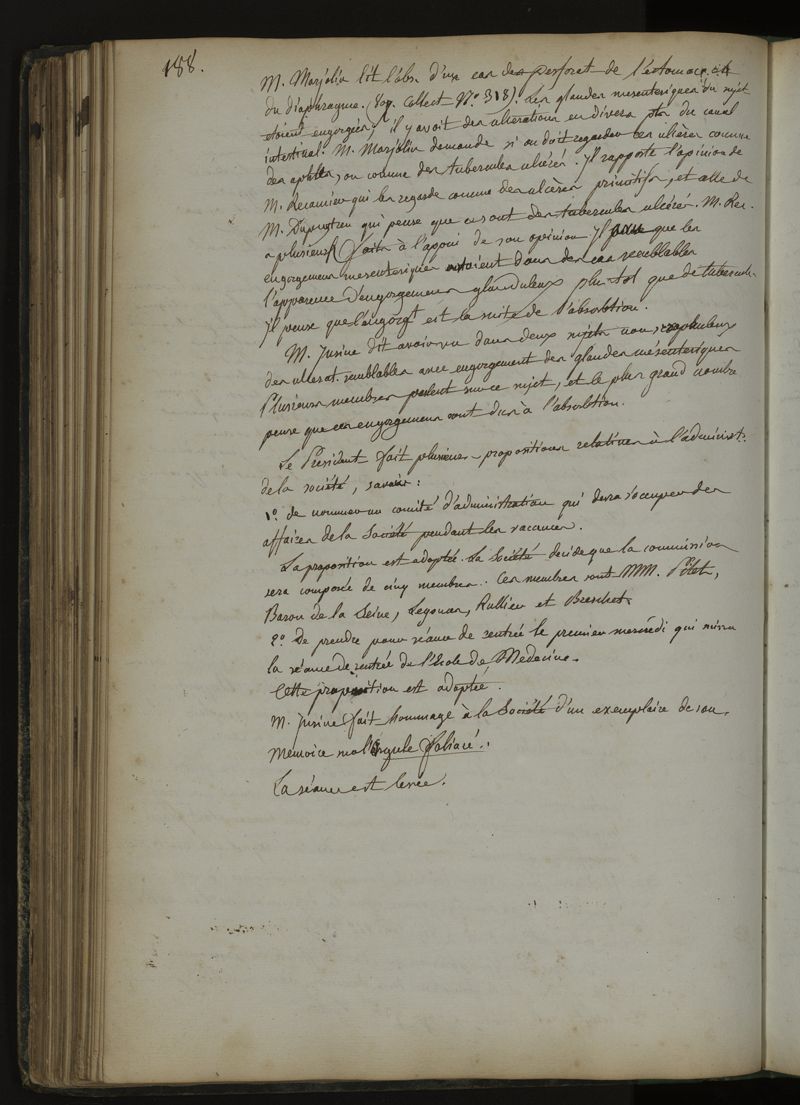 188.
M. Marjolin lit l'obs. d'un cas de perforat. de l'estomac et
du diaphragme. (Voy. Collect. N.° 318). Les glandes mesenteriques du sujet
etoient engorgées, il y avoit des ulcerations en divers pts du canal
intestinal. M. Marjolin demande si on doit regarder ces ulcères comme
des aphthes, ou comme des tubercules ulcérés. Il rapporte l'opinion de
M. Recamier qui les regarde comme des ulcères primitifs, et celle de
M. Dupuytren qui pense que ce sont des tubercules ulcérés. M. Rec.
a plusieurs faits à l'appui de son opinion. Il pense que les
engorgemens mesenteriques avoient dans des cas semblables
l'apparence d'engorgemens glanduleux plutot que de tubercules.
Il pense que l'engorgt est la suite de l'absorbtion.
M. Jusine dit avoir vu dans deux sujets non scrophuleux
des ulcerat. semblables avec engorgement des glandes mésenteriques
Plusieurs membres parlent sur ce sujet, et le plus grand nombre
pense que ces engorgemens sont dus à l'absorbtion.
Le Président fait plusieurs propositions relatives à l'administ.
de la société, savoir :
1.° de nommer un comité d'administration qui devra s'occuper des
affaires de la Société pendant les vacances.
La proposition est adoptée. La Société decide que la commission
sera composée de cinq membres. Ces membres sont MM.
Baron de la Seine, Legouas, Rullier et Breschet.
2.° De prendre pour séance de rentrée le premier mercredi qui suivra
la séance de rentrée de l'Ecole de Medecine.
Cette proposition est adoptée.
M. Jusine fait hommage à la Société d'un exemplaire de son
Memoire sur l'Ergule foliacé.
La séance est levée.